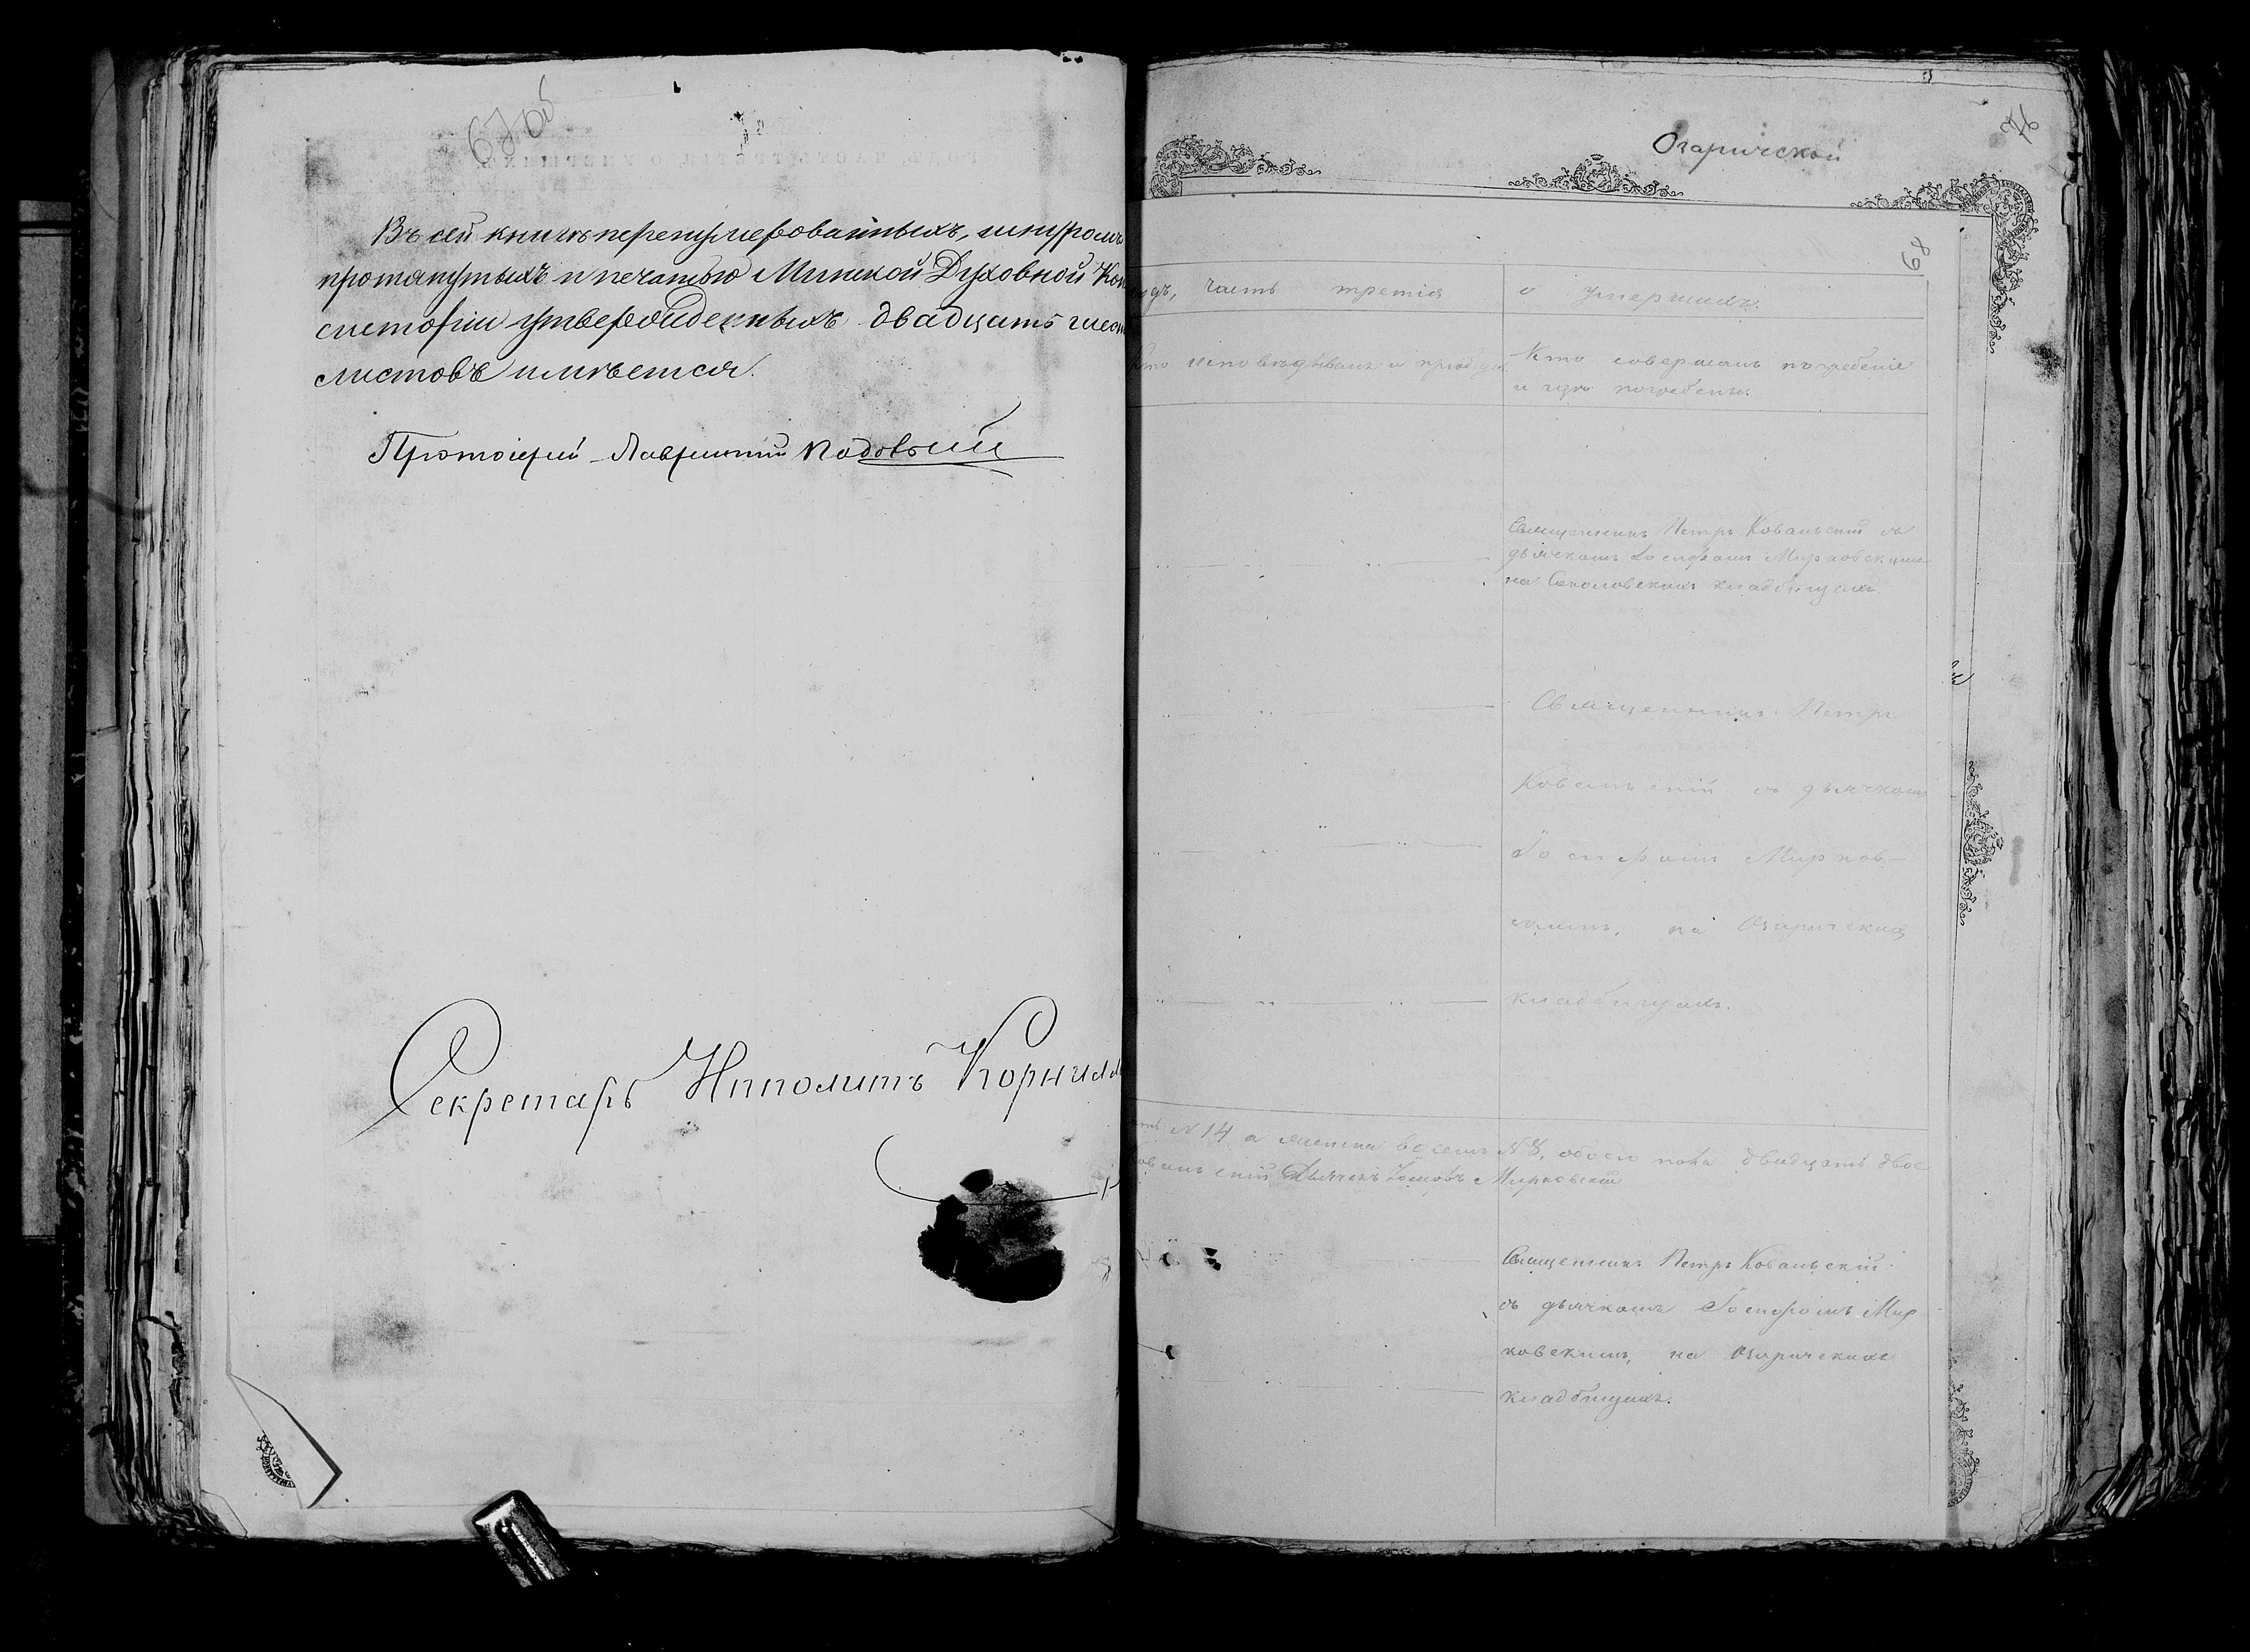 67об
Въ сей книгѣ перенумерованныхъ, шнуромъ
протянутыхъ и печатью Минской Духовной Кон
систоріи утвержденныхъ двадцать
листовъ имѣется.
Протоіерей Лаврентій
Секретарь Ипполитъ Корнил
Озаричской
68
годъ, часть третія о умершихъ.
Кто исповѣдывалъ и пріобщ. Кто совершалъ погребеніе
и гдѣ погребены.
Священникъ Петръ Ковальскій съ
дьячкомъ Іосифомъ Мирковскимъ
на кладбищахъ
Священникъ Петръ
Ковальскій съ дьячкомъ
Іосифомъ Мирков-
скимъ, на Озаричскихъ
кладбищахъ.
N 14 а женска восемь N 8, обоего пола двадцать двое
овальскій Дьячекъ Іосифъ Мирковскій
Священникъ Петръ Ковальскій
съ дьячкомъ Іосифомъ Мир
ковскимъ, на Озаричскихъ
кладбищахъ.